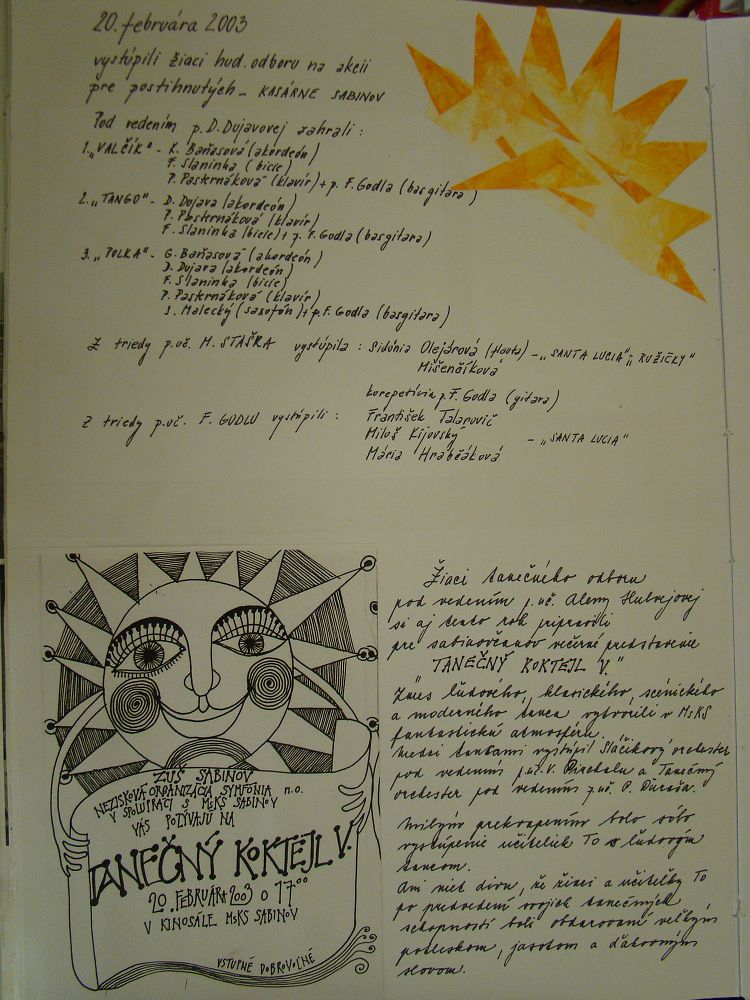 20. februára 2003
vystúpili žiaci hud. odboru na akcii
pre postihnutých - KASÁRNE SABINOV
Pod vedením p. D. Dujavovej zahrali :
1. „VALČÍK" - K. Baňasová (akordeón)
F. Slaninka (bicie)
P. Pasternáková (klavír) + p. F. Godla (basgitara)
2. „TANGO" - D. Dujava (akordeón)
P. Pasternáková (klavír)
F. Slaninka (bicie) + p. F. Godla (basgitara)
3. „POLKA" - G. Baňasová (akordeón)
D. Dujava (akordeón)
F. Slaninka (bicie)
P. Pasternáková (klavír)
S. Malecký (saxofón) + p. F. Godla (basgitara)
Z triedy p. uč. M. STAŠKA vystúpila : Sidónia Olejárová (flauta) - „SANTA LUCIA", „RUŽIČKY"
Mišenčíková
korepetícia p. F. Godla (gitara)
Z triedy p. uč. F. GODLU vystúpili : František Talarovič
Miloš Kijovský - „SANTA LUCIA"
Mária Hrabčáková
ZUŠ SABINOV
NEZISKOVÁ ORGANIZÁCIA SYMFÓNIA n.o.
V SPOLUPRÁCI S MsKS SABINOV
VÁS POZÝVAJÚ NA
TANEČNÝ KOKTEJL V.
20. FEBRUÁRA 2003 O 17⁰⁰
V KINOSÁLE MsKS SABINOV
VSTUPNÉ DOBROVOĽNÉ
Žiaci tanečného odboru
pod vedením p. uč. Aleny
si aj tento rok pripravili
pre sabinovčanov večerné predstavenie
"TANEČNÝ KOKTEJL V."
Zmes ľudového, klasického, scénického
a moderného tanca vytvorili v MsKS
fantastickú atmosféru.
Medzi tancami vystúpil Sláčikový orchester
pod vedením p. uč. V. a Tanečný
orchester pod vedením p. uč. P.
Milým prekvapením bolo
vystúpenie učiteliek TO s ľudovým
tancom.
Ani niet divu, že žiaci a učiteľky TO
po predvedení svojich tanečných
schopností boli obdarovaní veľkým
potleskom, jasotom a ďakovným
slovom.